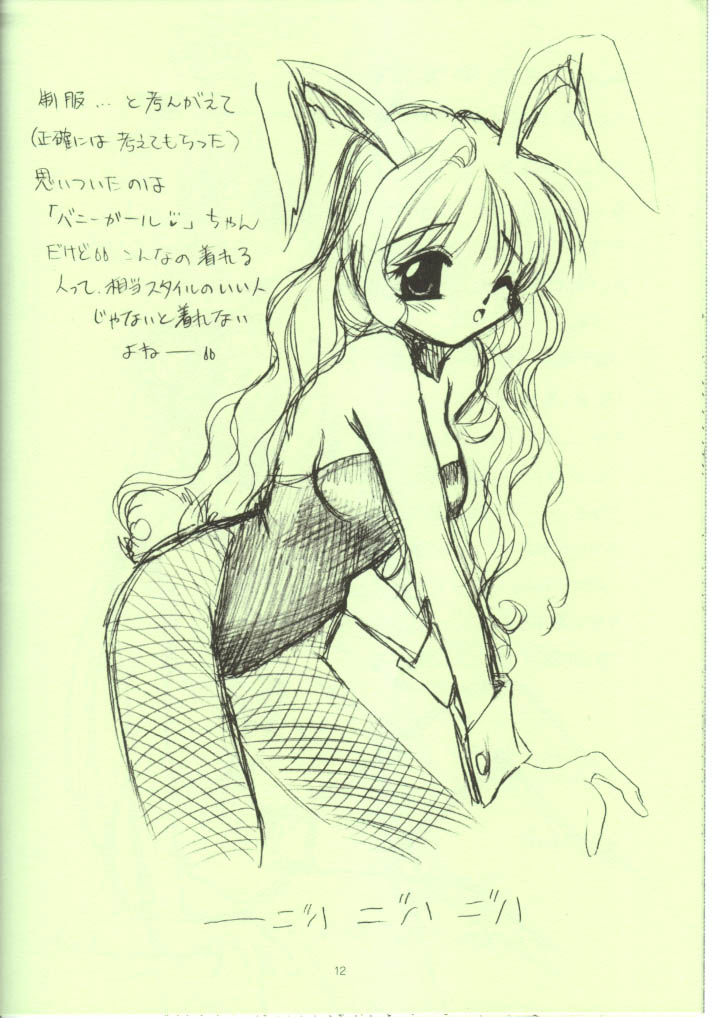 制服…と考んがえて
(正確には考えてもらった)
思いついたのは
「バニーガール♡」ちゃん
だけど。。こんなの着れる
人って、相当スタイルのいい人
じゃないと着れない
よねー。。
12